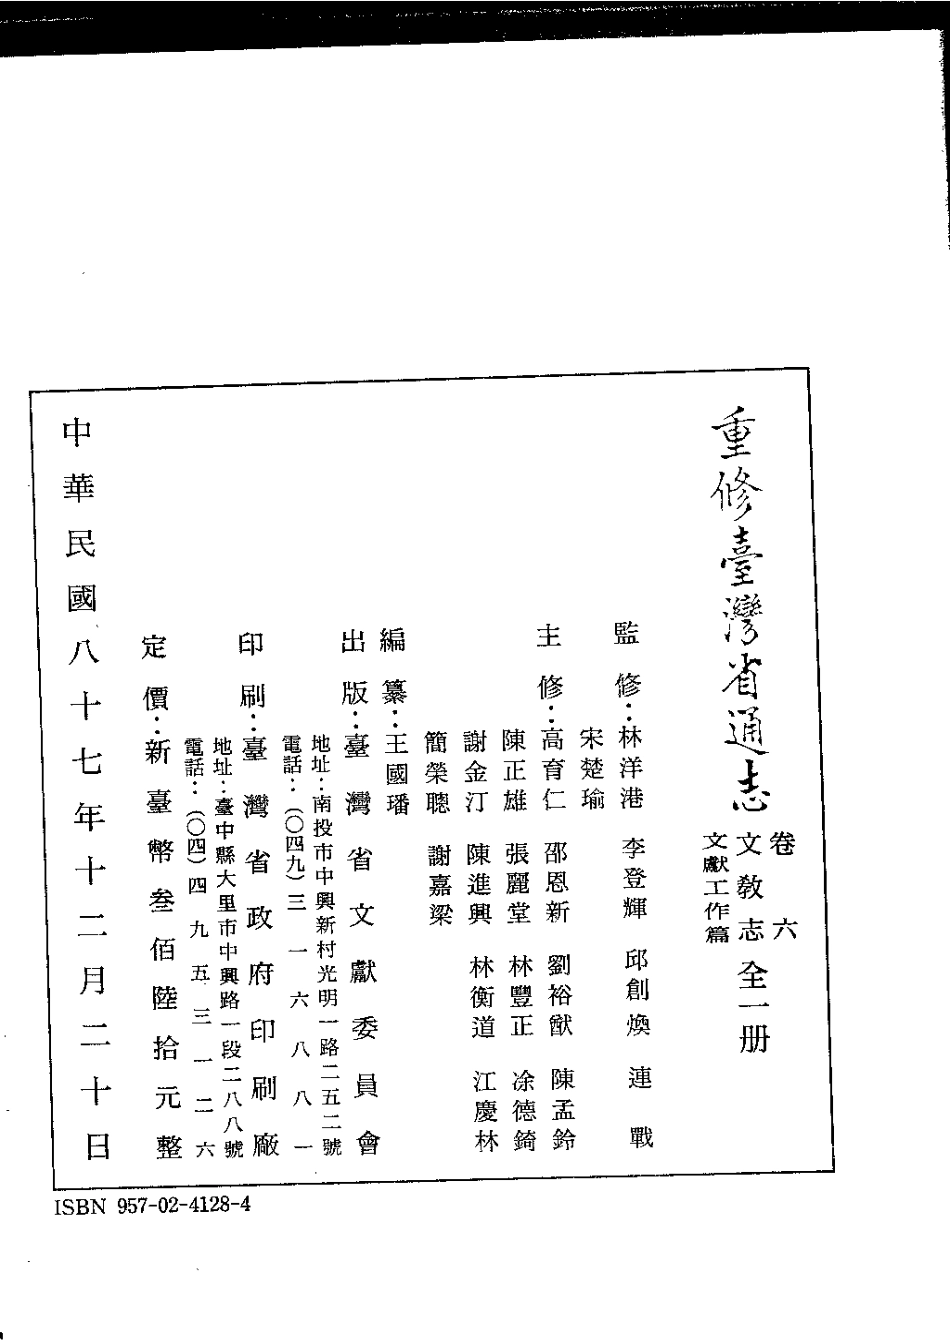 重修臺灣省通志
卷六
文教志全一册
文獻工作篇
監修：林洋港 李登輝 邱創煥 連戰
宋楚瑜
主修：高育仁 邵恩新 劉裕猷 陳孟鈴
陳正雄 張麗堂 林豐正 凃德錡
謝金汀 陳進興 林衡道 江慶林
簡榮聰 謝嘉梁
編纂：王國璠
出版：臺灣省文獻委員會
地址：南投市中興新村光明一路二五二號
電話：（〇四九）三一六八八一
印刷：臺灣省政府印刷廠
地址：臺中縣大里市中興路一段二八八號
電話：（〇四）四九五三一二六
定價：新臺幣叁佰陸拾元整
中華民國八十七年十二月二十日
ISBN 957-02-4128-4